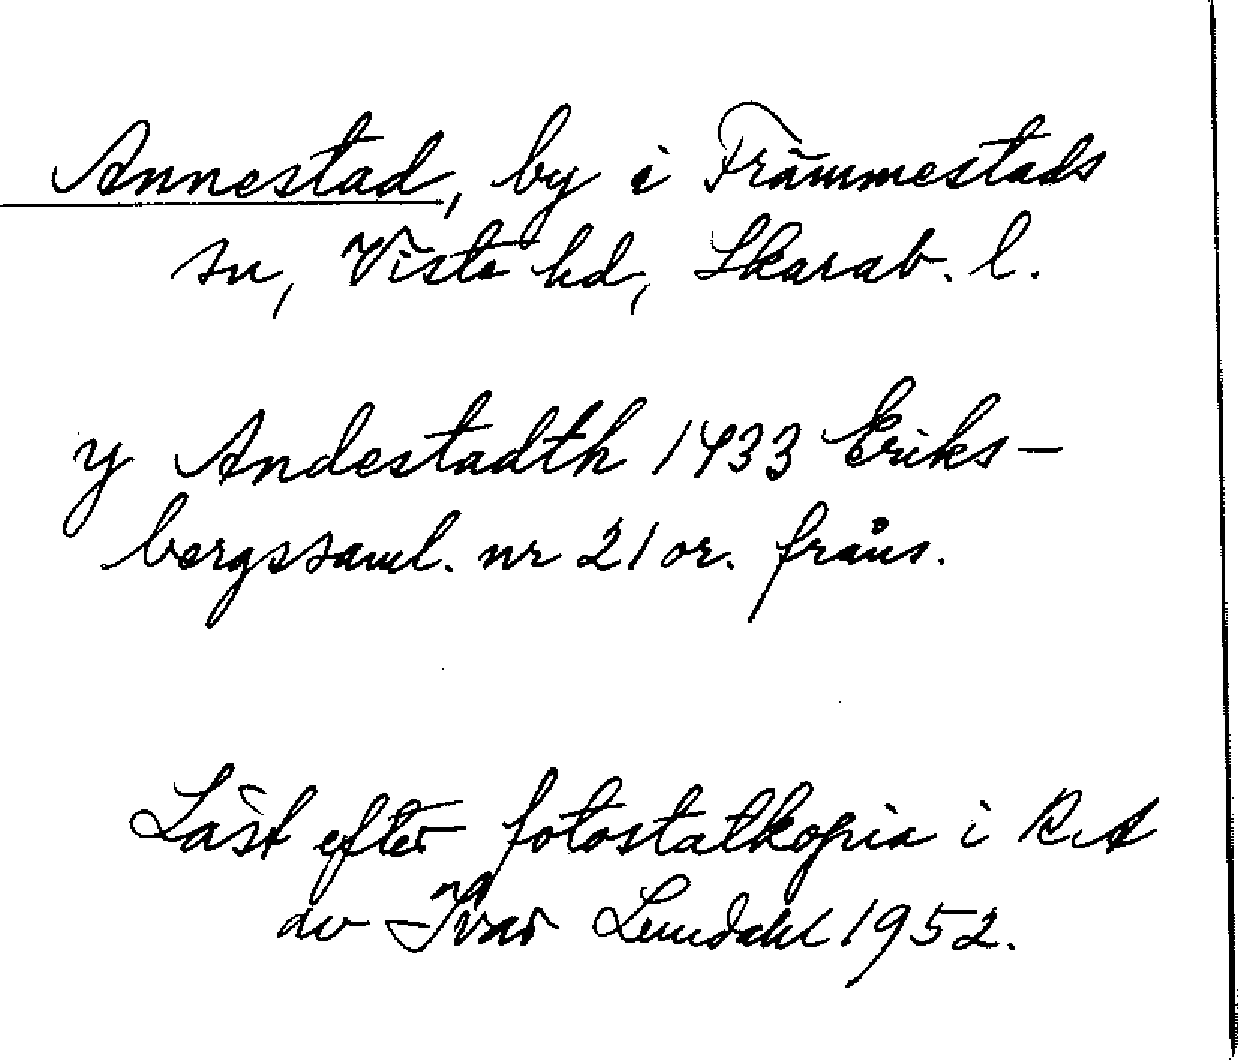 Annestad, by i Främmestads
sn, Viste hd, Skarab. l.
y Andestadth 1433 Eriks-
bergssaml. nr 21 or. fråns.
Läst efter fotostatkopia i RA
av Ivar Lundahl 1952.